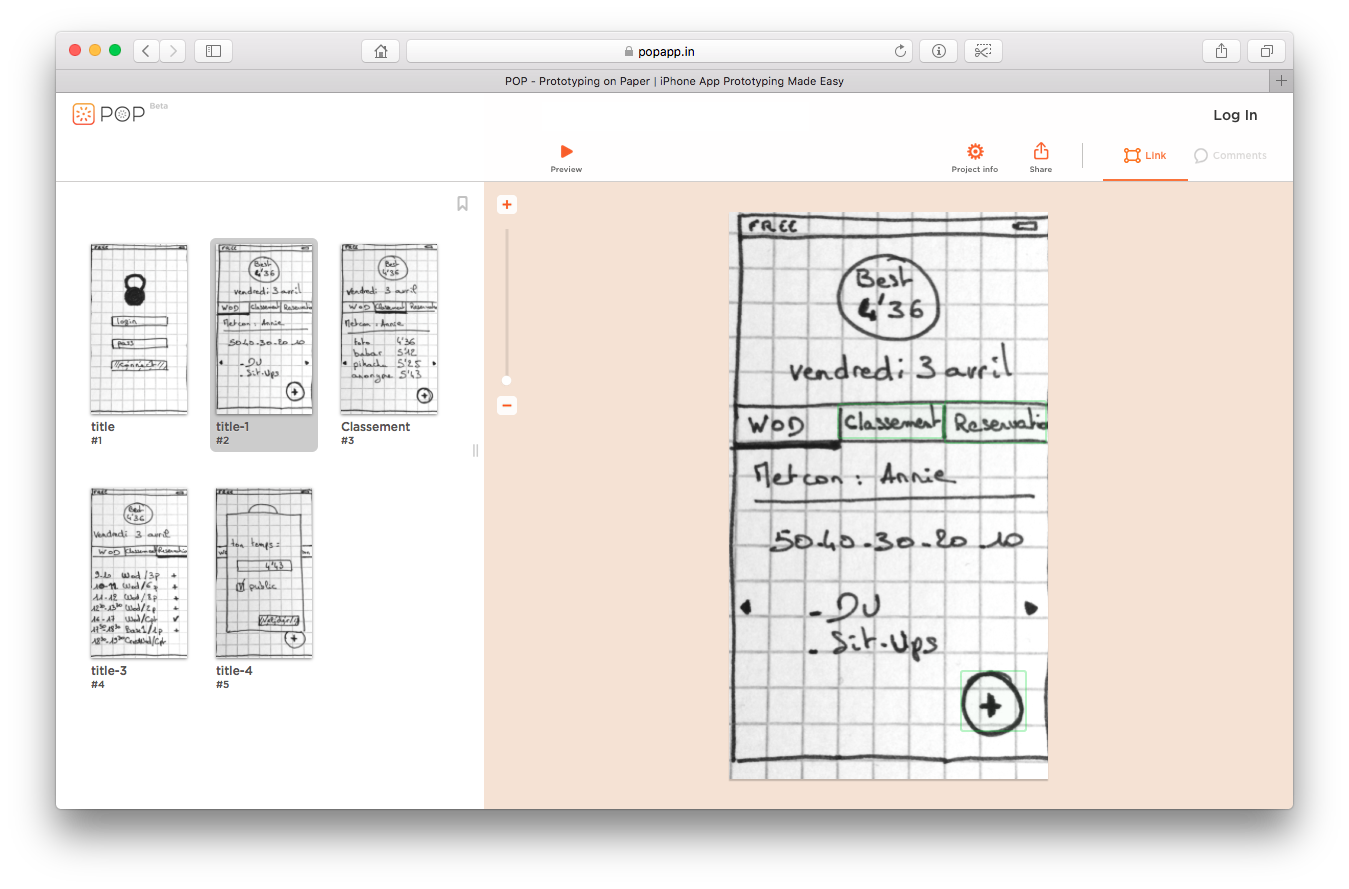 popapp.in
POP - Prototyping on Paper | iPhone App Prototyping Made Easy
POP Beta
Log In
Preview
Project info
Share
Link
Comments
FREE
login
pass
connect
title
#1
FREE
Best
4'36
vendredi 3 avril
WOD Classement Reservatio
Metcon : Annie
50.40-30-20.10
- DU
- Sit-Ups
+
title-1
#2
FREE
Best
4'36
vendredi 3 avril
WOD Classement Reservatio
Metcon : Annie
toto 4'36
babar 5'12
pikachu 5'25
anonyme 5'43
+
Classement
#3
FREE
Best
4'36
Vendredi 3 avril
WOD Classement Reservatio
9-10 Wod/3p +
Wod/5p +
11-12 Wod/3p +
Wod/2p +
16-17 Wod/Cpt ✓
+
title-3
#4
FREE
ton temps :
4'43
public
+
title-4
#5
+
−
FREE
Best
4'36
vendredi 3 avril
WOD Classement Reservatio
Metcon : Annie
50.40-30-20.10
- DU
- Sit-Ups
+